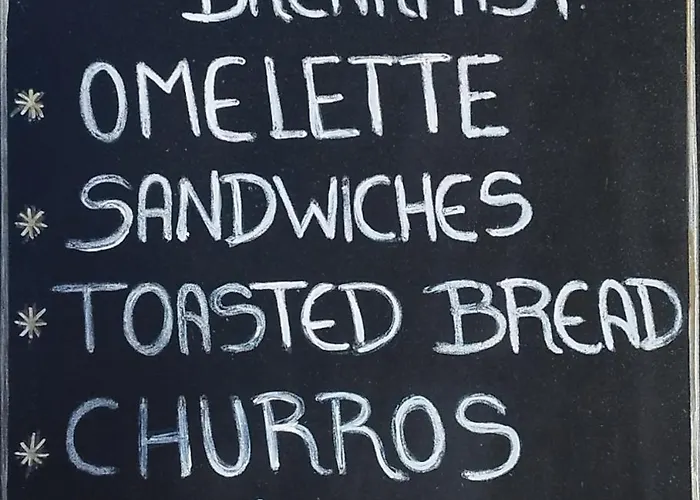 BREAKFAST:
* OMELETTE
* SANDWICHES
* TOASTED BREAD
* CHURROS